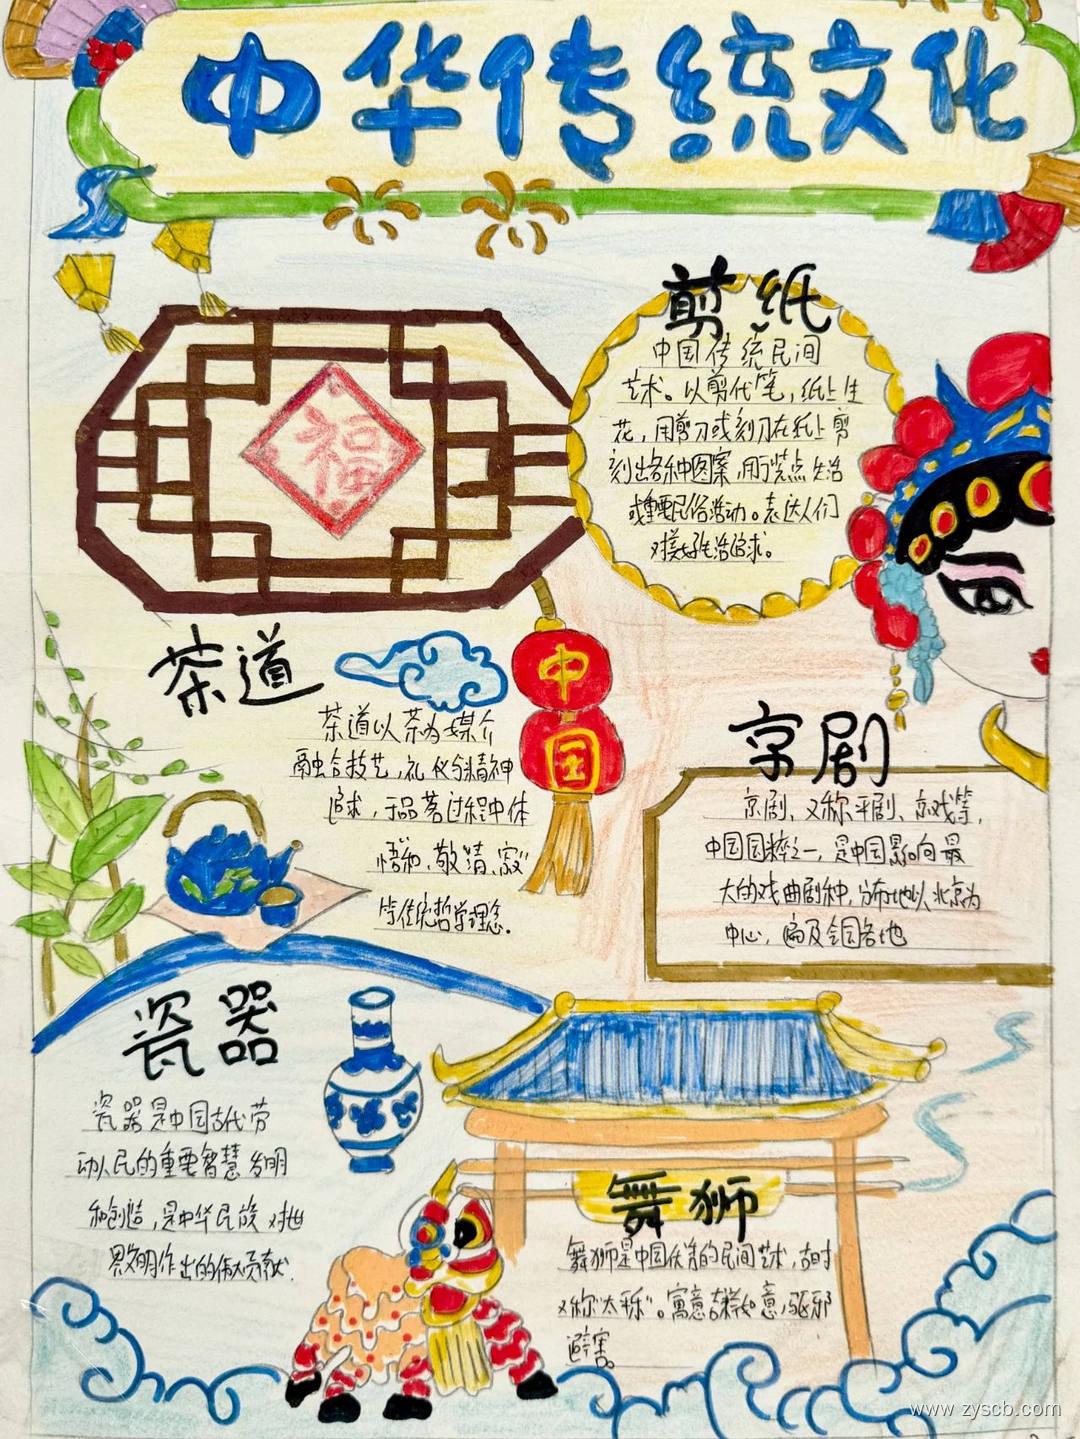 中华传统文化
福
剪纸
中国传统民间
艺术。以剪代笔，纸上生
花，用剪刀或刻刀在纸上剪
刻出各种图案，用于装点生活
或重要民俗活动。表达人们
对美好生活追求。
茶道
茶道以茶为媒介
融合技艺，礼仪与精神
追求，于品茗过程中体
悟和、敬、清、寂”
等传统哲学理念.
中国
京剧
京剧、又称平剧、京戏等，
中国国粹之一，是中国影响最
大的戏曲剧种，分布地以北京为
中心，遍及全国各地
瓷器
瓷器是中国古代劳
动人民的重要智慧发明
和创造，是中华民族对世
界文明作出的伟大贡献.
舞狮
舞狮是中国优秀的民间艺术，古时
又称“太平乐”。寓意吉祥如意，驱邪
避害。
www.zyscb.com